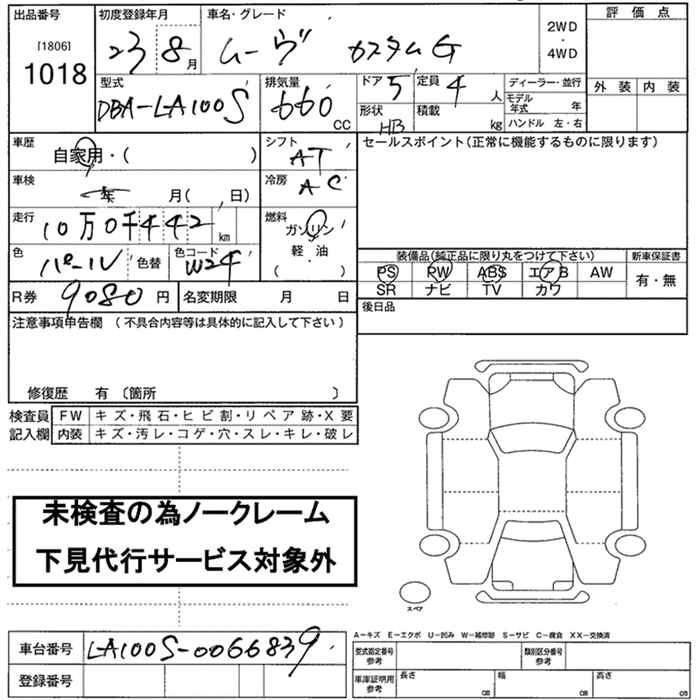 出品番号 初度登録年月 車名・グレード 評価点
[1806] 1018 23 8月 ムーヴ カスタムG 2WD・4WD
型式 排気量 ドア 5 定員 4人 ディーラー・並行 外装 内装
DBA-LA100S 660cc 形状 HB 積載 kg モデル年式 年
ハンドル 左・右
車歴 自家用・( ) シフト AT セールスポイント(正常に機能するものに限ります)
車検 年 月( 日) 冷房 AC
走行 10万0千442km 燃料 ガソリン
軽・油
( ・ )
色 パール 色替 色コード W24 装備品(純正品に限り丸をつけて下さい) 新車保証書
PS PW ABS エアB AW 有・無
SR ナビ TV カワ
R券 9080円 名変期限 月 日 後日品
注意事項申告欄 (不具合内容等は具体的に記入して下さい)
修復歴 有 〔箇所 〕
検査員 FW キズ・飛石・ヒビ割・リペア跡・X要
記入欄 内装 キズ・汚レ・コゲ・穴・スレ・キレ・破レ
未検査の為ノークレーム
下見代行サービス対象外
スペア
A−キズ E−エクボ U−凹み W−補修跡 S−サビ C−腐食 XX−交換済
車台番号 LA100S-0066839 型式指定番号 参考 類別区分番号 参考
登録番号 車庫証明用 参考 長さ cm 幅 cm 高さ cm